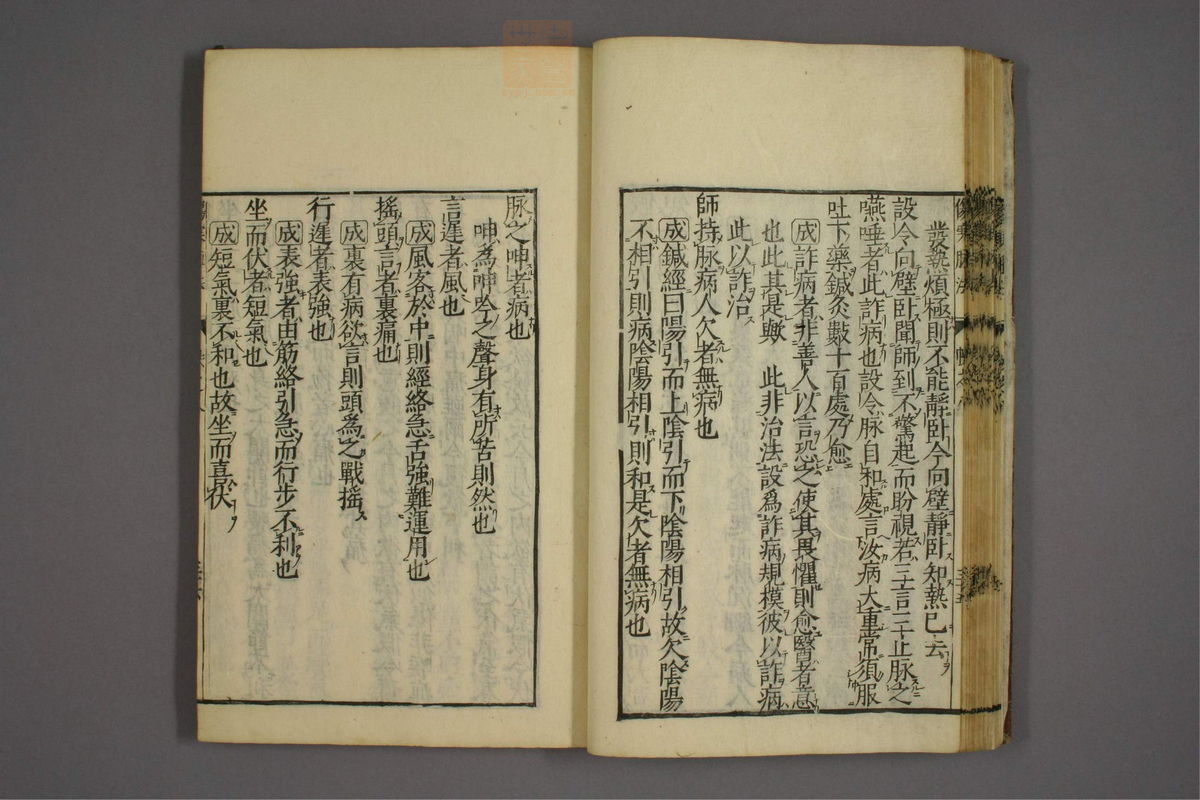 發熱煩極則不能靜臥今向壁靜臥知熱已去
設令向壁臥聞師到不驚起而盻視若三言三止脉之
嚥唾者此詐病也設令脉自和處言汝病大重當須服
吐下藥鍼灸數十百處乃愈
成詐病者非善人以言恐之使其畏懼則愈醫者意
也此其是歟 此非治法設爲詐病規模彼以詐病
此以詐治
師持脉病人欠者無病也
成鍼經曰陽引而上陰引而下陰陽相引故欠陰陽
不相引則病陰陽相引則和是欠者無病也
脉之呻者病也
呻為呻吟之聲身有所苦則然也
言遲者風也
成風客於中則經絡急舌強難運用也
搖頭言者裏痛也
成裏有病欲言則頭為之戰搖
行遲者表強也
成表強者由筋絡引急而行步不利也
坐而伏者短氣也
成短氣裏不和也故坐而喜伏